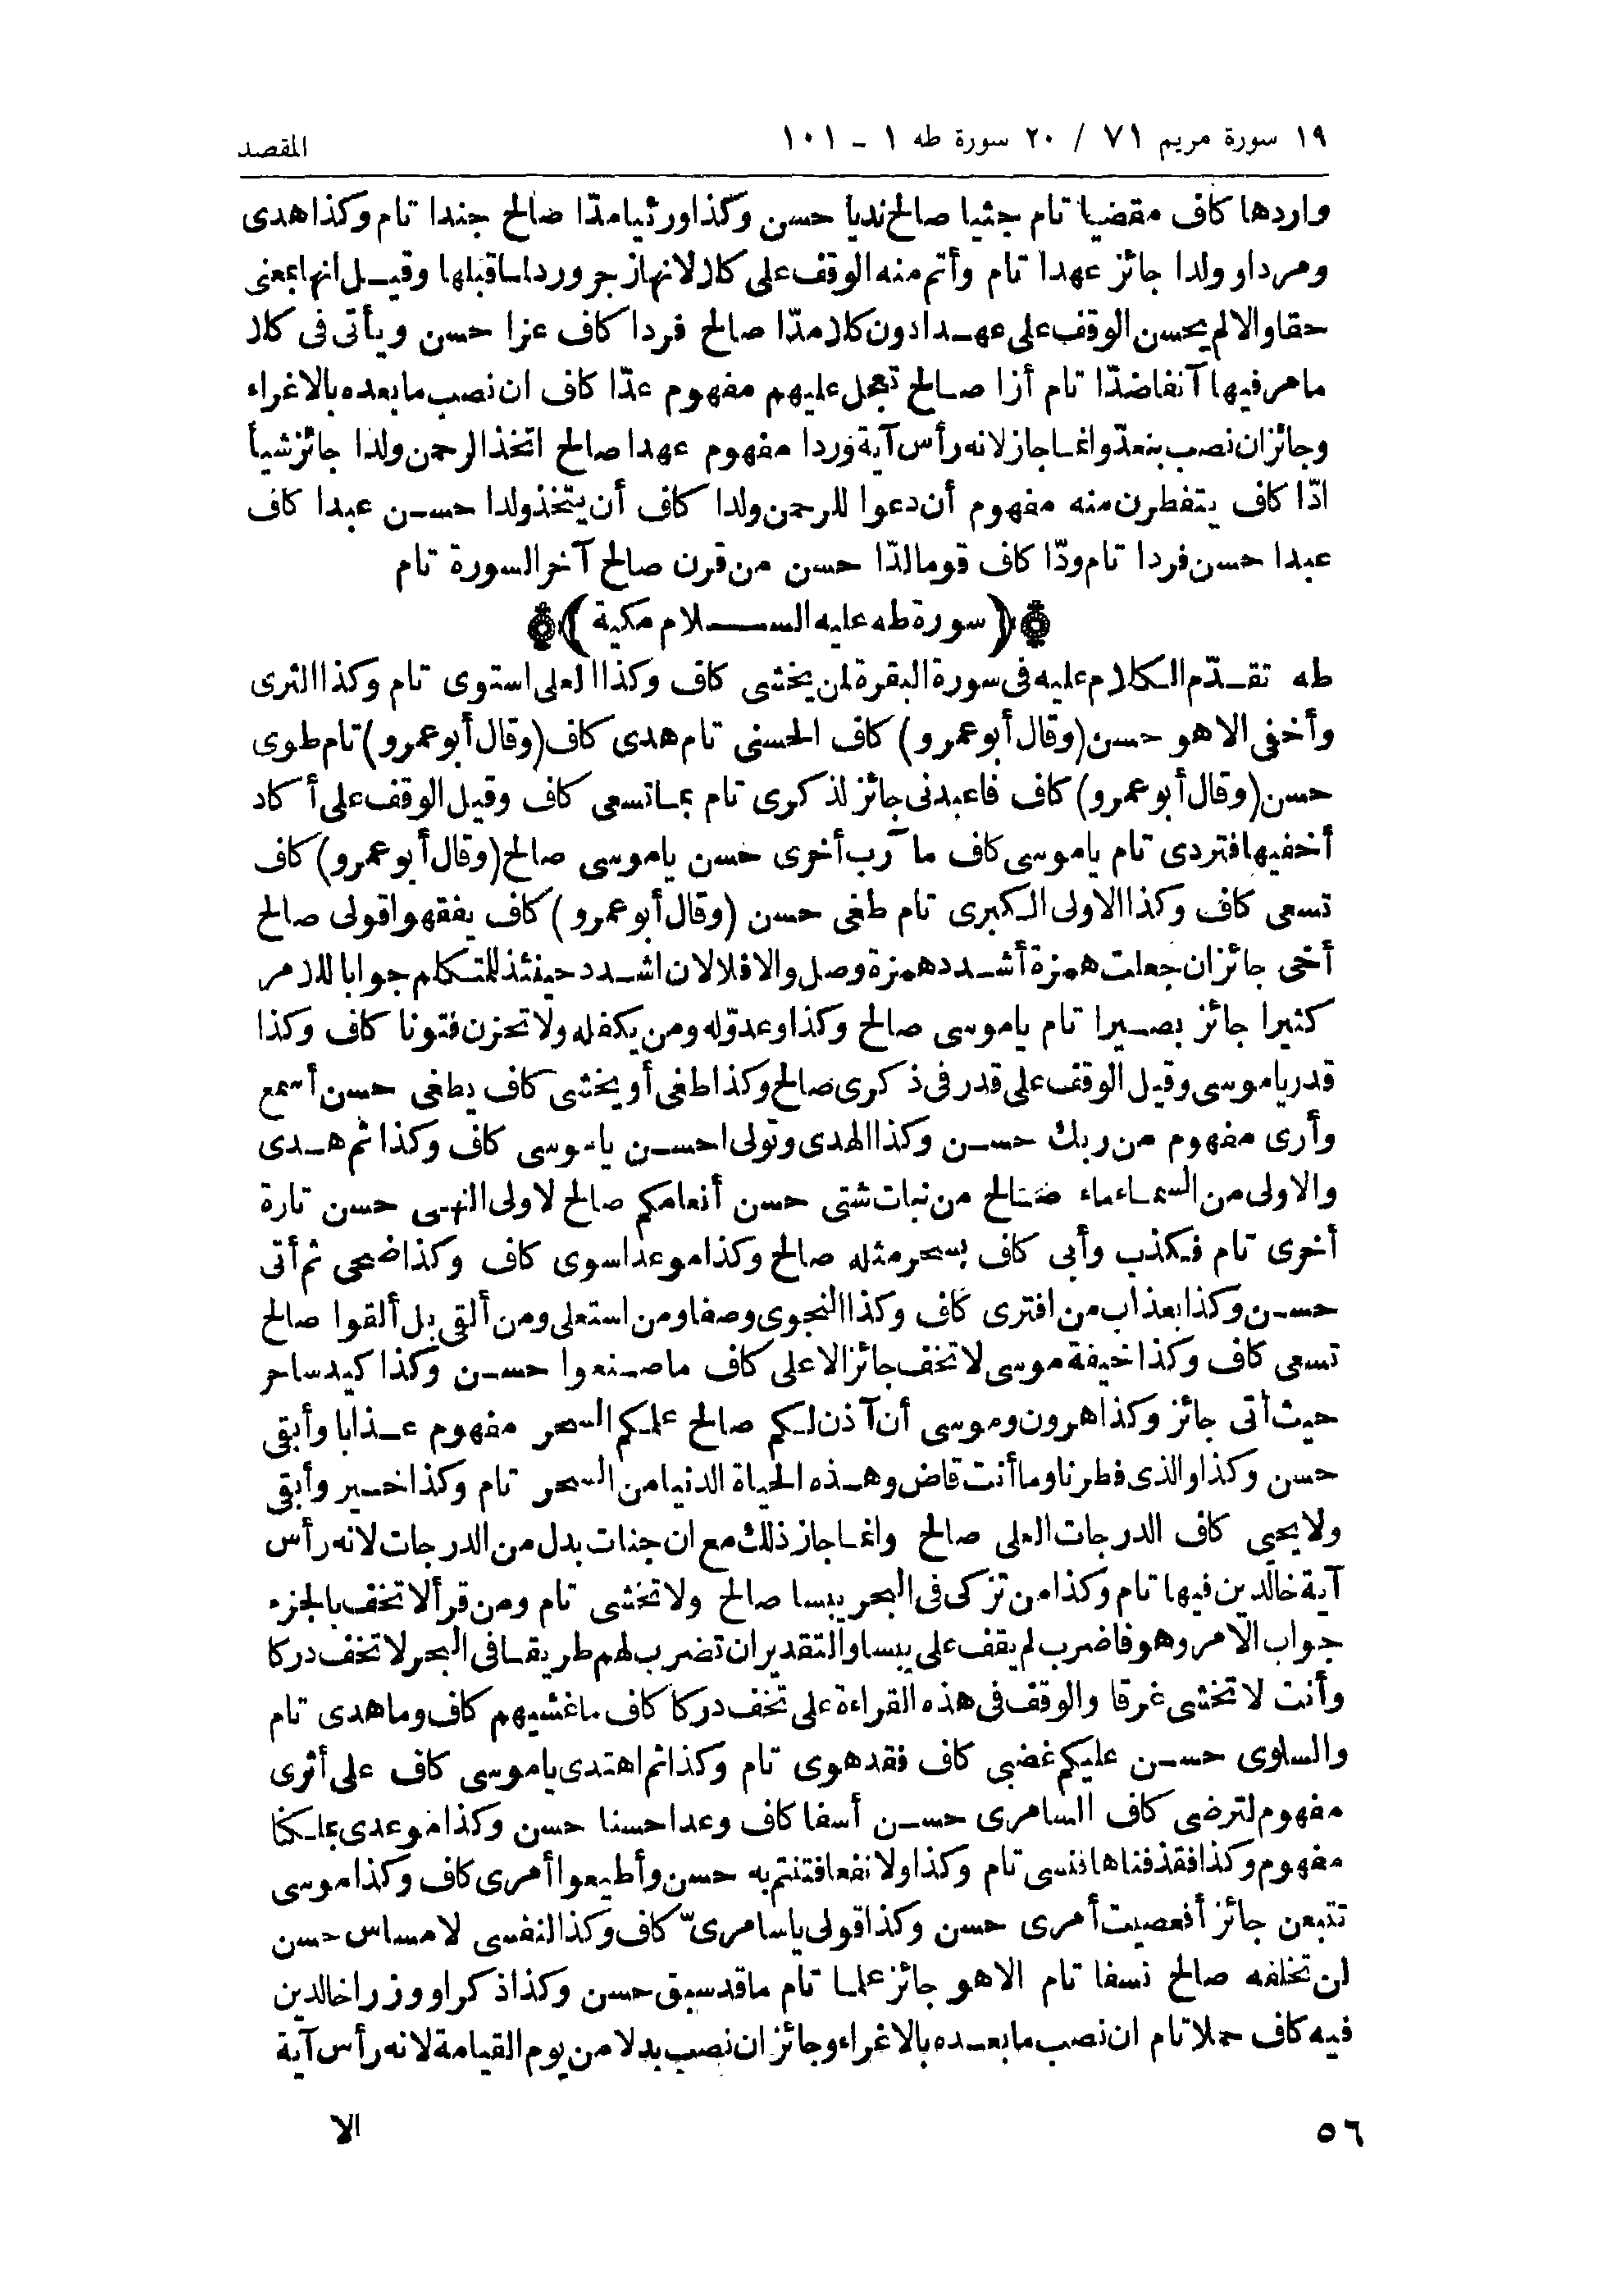 ١٩ سورة مريم ٧١ / ٢٠ سورة طه ١ - ١٠١
المقصد
واردها كاف مقضيا تام جثيا صالح نديا حسن وكذا ورئيا مدّا صالح جندا تام وكذا هدى
ومردا وولدا جائز عهدا تام وأتم منه الوقف على كلا لانها زجر ورد لما قبلها وقيل انها بمعنى
حقا والا لم يحسن الوقف على عهدا دون كلا مدّا صالح فردا كاف عزا حسن ويأتى فى كلا
ما مر فيها آنفا ضدّا تام أزا صالح تعجل عليهم مفهوم عدّا كاف ان نصب ما بعده بالاغراء
وجائز ان نصب بنعدّ وانما جاز لانه رأس آية وردا مفهوم عهدا صالح اتخذ الرحمن ولدا جائز شيأ
ادّا كاف يتفطرن منه مفهوم أن دعوا للرحمن ولدا كاف أن يتخذ ولدا حسن عبدا كاف
عبدا حسن فردا تام ودّا كاف قوما لدّا حسن من قرن صالح آخر السورة تام
(سورة طه عليه السلام مكية)
طه تقدّم الكلام عليه فى سورة البقرة لمن يخشى كاف وكذا العلى استوى تام وكذا الثرى
وأخفى الا هو حسن (وقال أبو عمرو) كاف الحسنى تام هدى كاف (وقال أبو عمرو) تام طوى
حسن (وقال أبو عمرو) كاف فاعبدنى جائز لذكرى تام بما تسعى كاف وقيل الوقف على أكاد
أخفيها فتردى تام ياموسى كاف مآرب أخرى حسن ياموسى صالح (وقال أبو عمرو) كاف
تسعى كاف وكذا الاولى الكبرى تام طغى حسن (وقال أبو عمرو) كاف يفقهوا قولى صالح
أخى جائز ان جعلت همزة أشدد همزة وصل والا فلا لان اشدد حينئذ للمتكلم جوابا للامر
كثيرا جائز بصيرا تام ياموسى صالح وكذا وعدوّ له ومن يكفله ولا تحزن فتونا كاف وكذا
قدر ياموسى وقيل الوقف على قدر فى ذكرى صالح وكذا طغى أو يخشى كاف يطغى حسن أسمع
وأرى مفهوم من ربك حسن وكذا الهدى وتولى احسن ياموسى كاف وكذا ثم هدى
والاولى من السماء ماء صالح من نبات شتى حسن أنعامكم صالح لاولى النهى حسن تارة
أخرى تام فكذب وأبى كاف بسحر مثله صالح وكذا موعدا سوى كاف وكذا ضحى ثم أتى
حسن وكذا بعذاب من افترى كاف وكذا النجوى وصفا ومن استعلى ومن ألقى بل ألقوا صالح
تسعى كاف وكذا خيفة موسى لا تخف جائز الاعلى كاف ما صنعوا حسن وكذا كيد ساحر
حيث أتى جائز وكذا هرون وموسى أن آذن لكم صالح علمكم السحر مفهوم عذابا وأبقى
حسن وكذا والذى فطرنا وما أنت قاض وهذه الحياة الدنيا من السحر تام وكذا خير وأبقى
ولا يحيى كاف الدرجات العلى صالح وانما جاز ذلك مع ان جنات بدل من الدرجات لانه رأس
آية خالدين فيها تام وكذا من تزكى فى البحر يبسا صالح ولا تخشى تام ومن قرأ لا تخف بالجزم
جواب الامر وهو فاضرب لم يقف على يبسا والتقدير ان تضرب لهم طريقا فى البحر لا تخف دركا
وأنت لا تخشى غرقا والوقف فى هذه القراءة على تخف دركا كاف ما غشيهم كاف وما هدى تام
والسلوى حسن عليكم غضبى كاف فقد هوى تام وكذا ثم اهتدى ياموسى كاف على أثرى
مفهوم لترضى كاف السامرى حسن أسفا كاف وعدا حسنا حسن وكذا موعدى بملكنا
مفهوم وكذا فقذفناها فنسى تام وكذا ولا نفعا فتنتم به حسن وأطيعوا أمرى كاف وكذا موسى
تتبعن جائز أفعصيت أمرى حسن وكذا قولى ياسامرىّ كاف وكذا لنفسى لا مساس حسن
لن تخلفه صالح نسفا تام الا هو جائز علما تام ما قد سبق حسن وكذا ذكرا ووزرا خالدين
فيه كاف حملا تام ان نصب ما بعده بالاغراء وجائز ان نصب بدلا من يوم القيامة لانه رأس آية
الا
٥٦